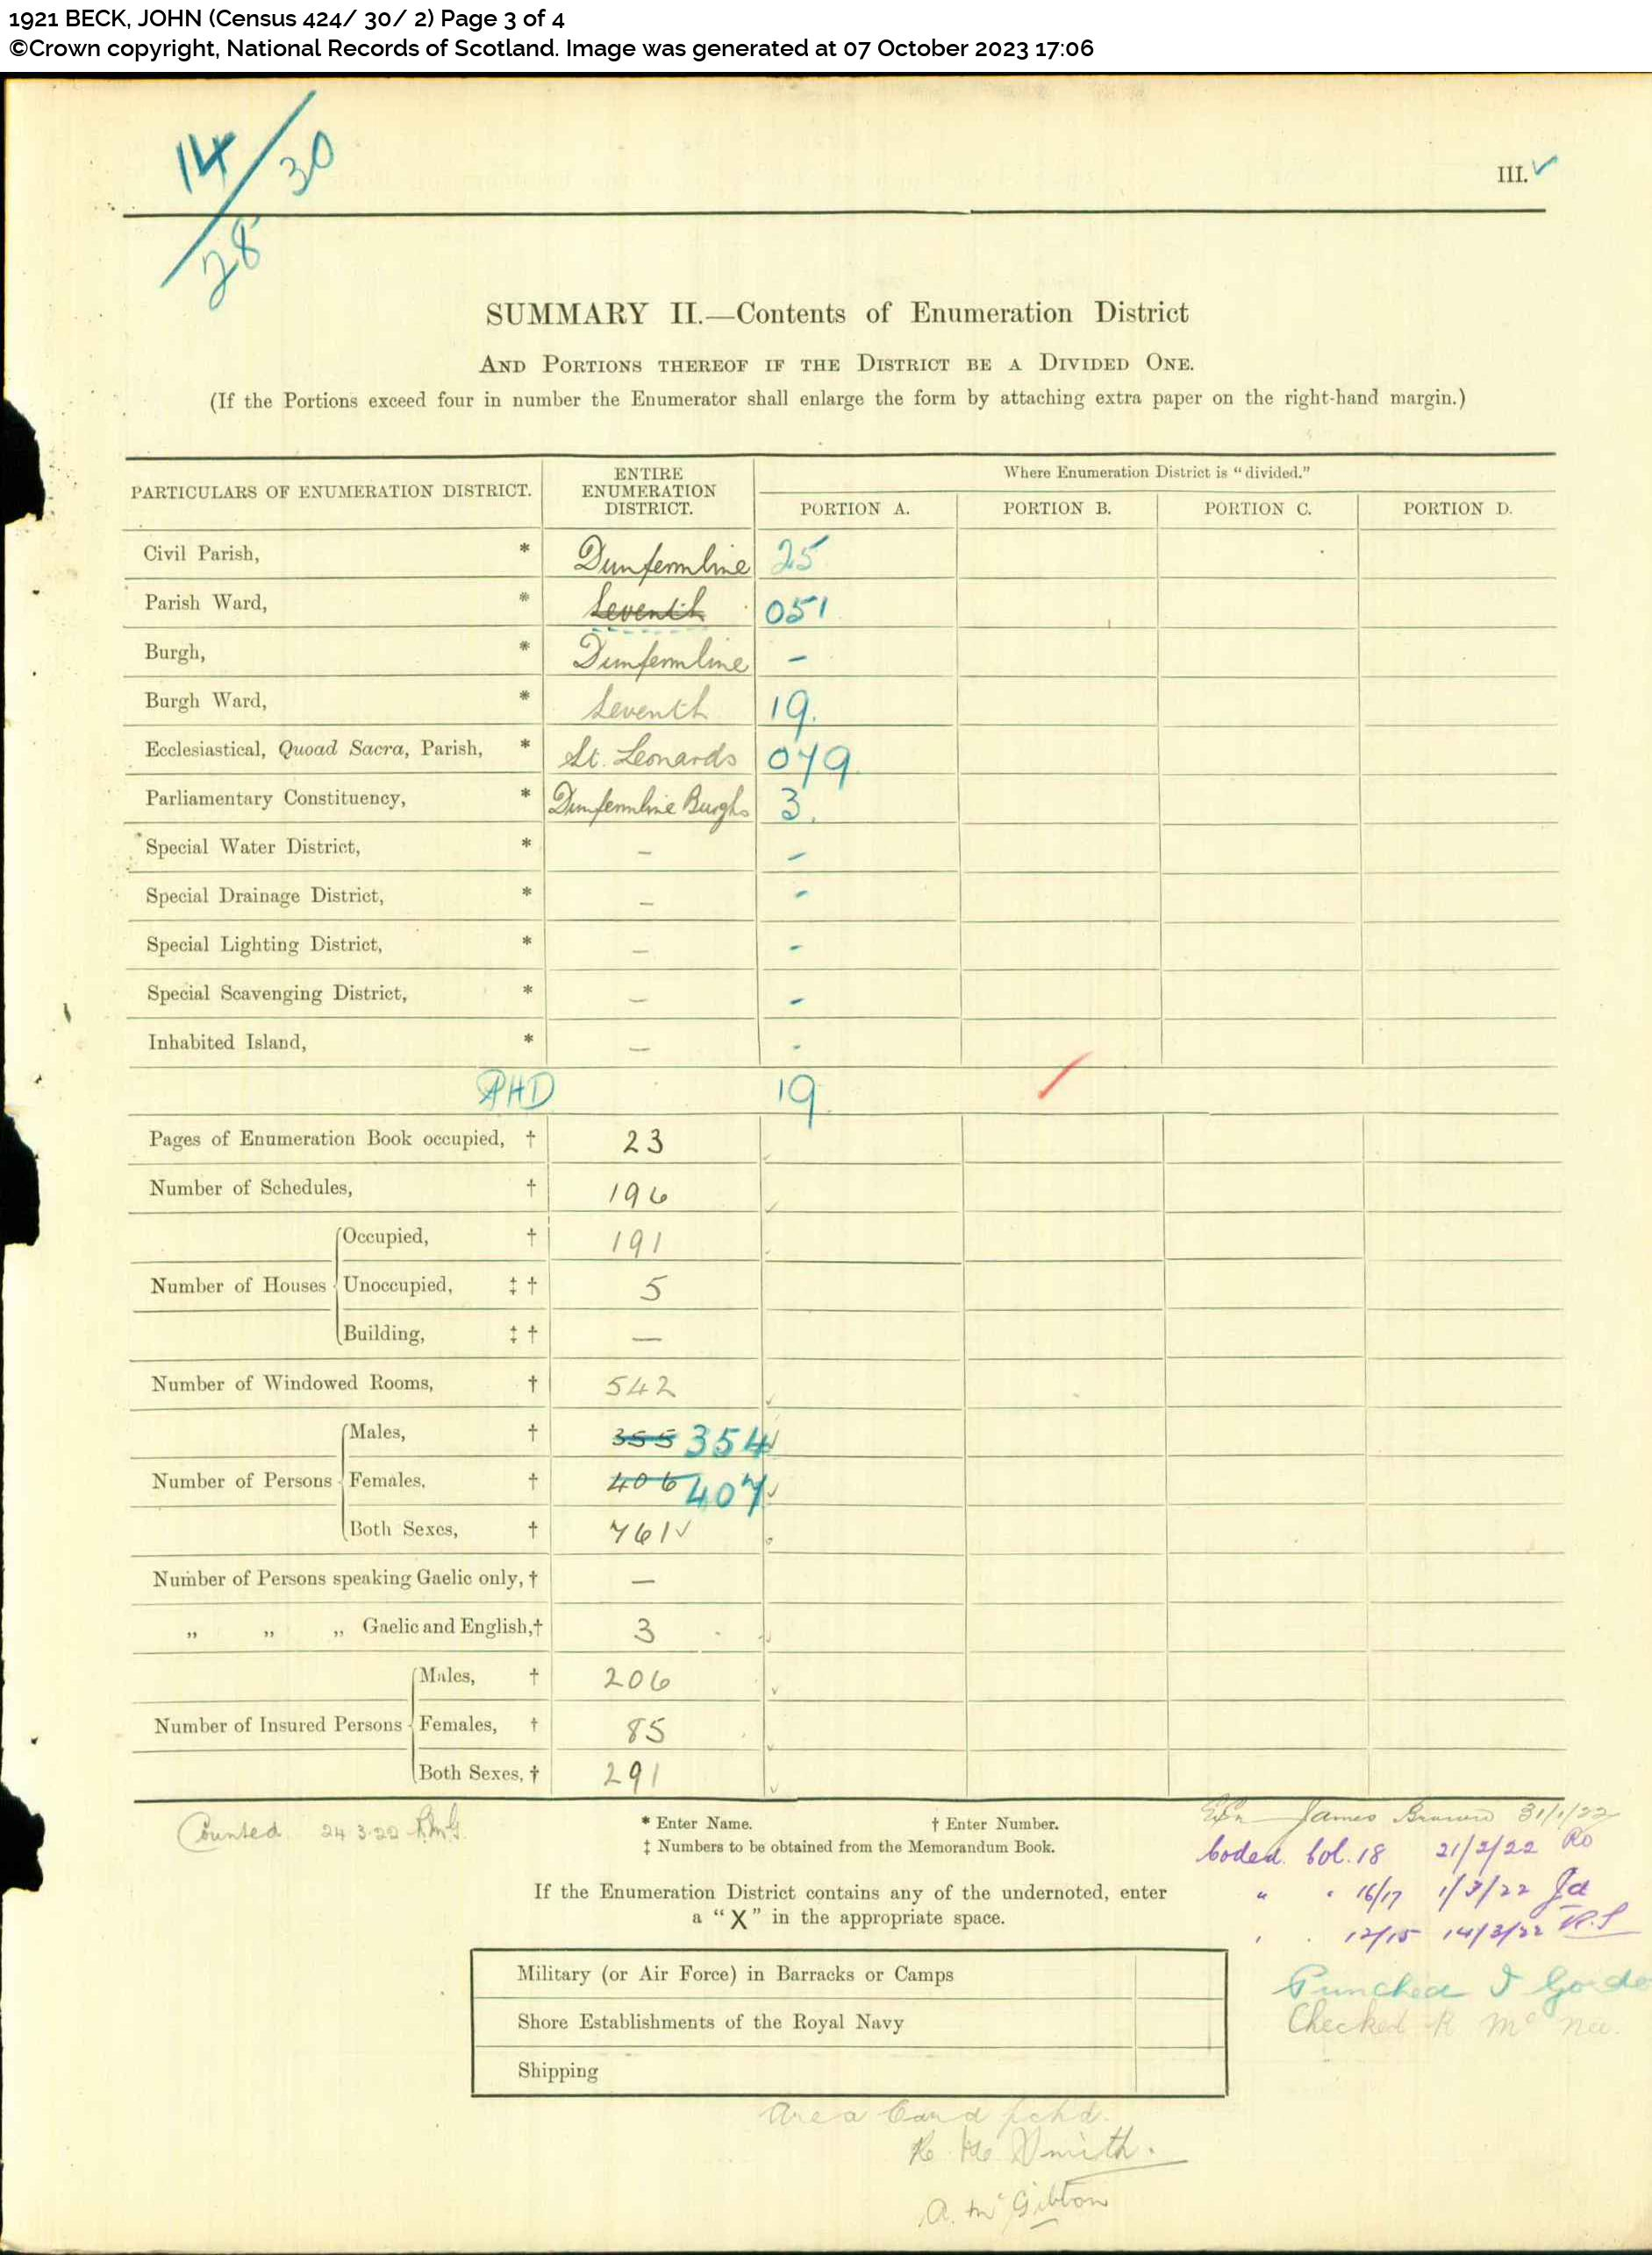 1921 BECK, JOHN (Census 424/ 30/ 2) Page 3 of 4
©Crown copyright, National Records of Scotland. Image was generated at 07 October 2023 17:06
14 / 30
28
III.
SUMMARY II.—Contents of Enumeration District
AND PORTIONS THEREOF IF THE DISTRICT BE A DIVIDED ONE.
(If the Portions exceed four in number the Enumerator shall enlarge the form by attaching extra paper on the right-hand margin.)
PARTICULARS OF ENUMERATION DISTRICT.
ENTIRE ENUMERATION DISTRICT.
Where Enumeration District is "divided."
PORTION A. PORTION B. PORTION C. PORTION D.
Civil Parish, * Dunfermline 25
Parish Ward, * Seventh 051
Burgh, * Dunfermline –
Burgh Ward, * Seventh 19.
Ecclesiastical, Quoad Sacra, Parish, * St. Leonards 079
Parliamentary Constituency, * Dunfermline Burghs 3.
Special Water District, * – –
Special Drainage District, * – –
Special Lighting District, * – –
Special Scavenging District, * – –
Inhabited Island, * – –
PHD 19
Pages of Enumeration Book occupied, † 23
Number of Schedules, † 196
Number of Houses
Occupied, † 191
Unoccupied, ‡ † 5
Building, ‡ † —
Number of Windowed Rooms, † 542
Number of Persons
Males, † 355 354
Females, † 406 407
Both Sexes, † 761
Number of Persons speaking Gaelic only, † —
„ „ „ Gaelic and English, † 3
Number of Insured Persons
Males, † 206
Females, † 85
Both Sexes, † 291
Counted 24 3.22
* Enter Name. † Enter Number.
‡ Numbers to be obtained from the Memorandum Book.
James Brown 31/1/22
Coded. Col. 18 21/2/22 Ro
" " 16/17 1/3/22
" " 12/15 14/3/22
If the Enumeration District contains any of the undernoted, enter
a "X" in the appropriate space.
Military (or Air Force) in Barracks or Camps
Shore Establishments of the Royal Navy
Shipping
Punched
Checked R
Area Card pchd.
Smith.
A. McGibbon